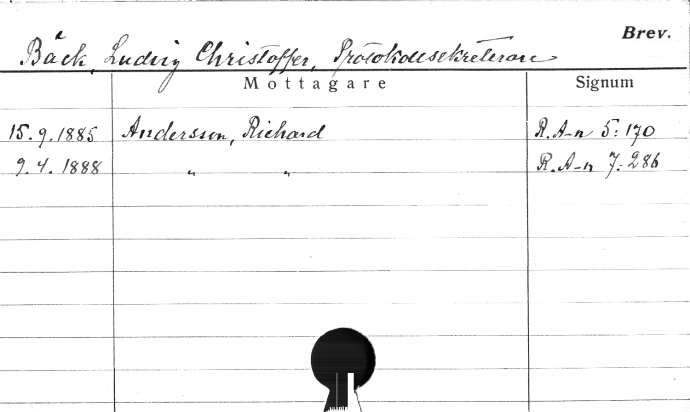 Brev.
Bäck, Ludvig Christoffer, Protokollsekreterare
Mottagare Signum
15.9.1885 Andersson, Richard R.A-n 5:170
9.4.1888 " " R.A-n 7:286